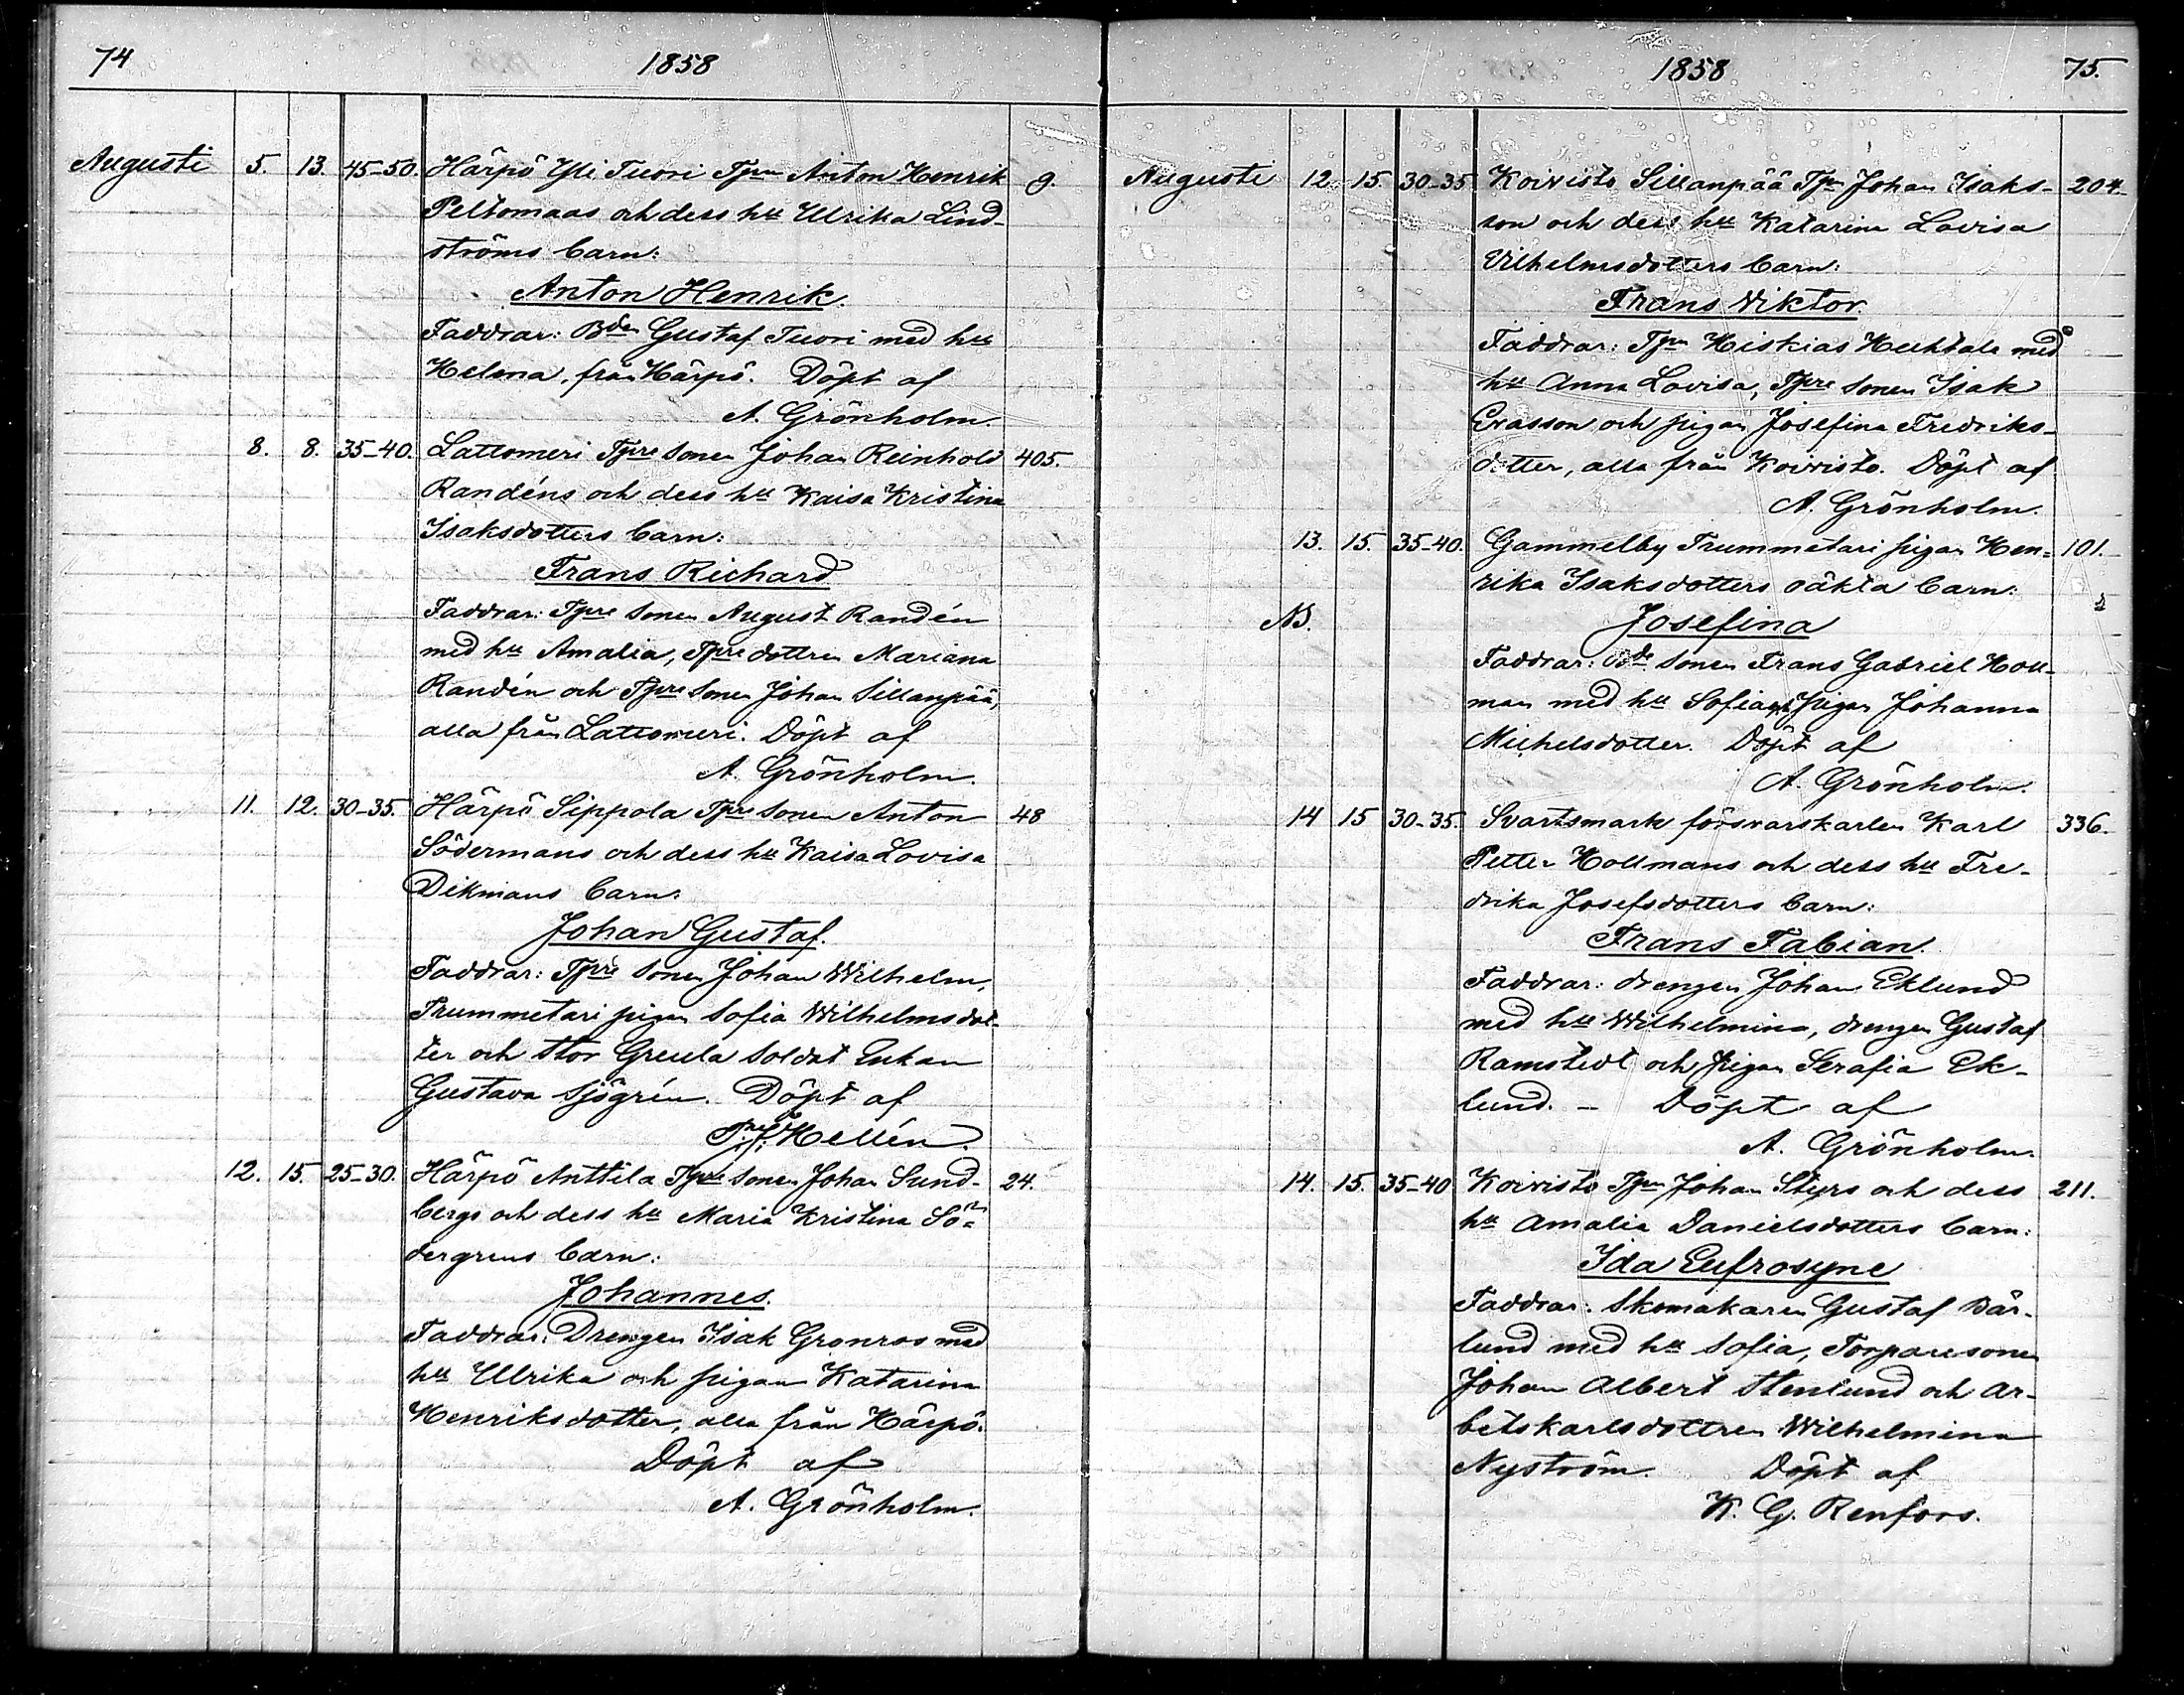 74
1858
Augusti 5. 13. 45-50. Härpö Yli Tuori Tpn Anton Henrik 9.
Peltomaas och dess hu Ulrika Lind-
ströms barn:
Anton Henrik.
Faddrar: Bden Gustaf Tuori med hu
Helena, från Härpö. Döpt af
A. Grönholm.
8. 8. 35-40. Lattomeri Tpre sonen Johan Reinhold 405.
Randéns och dess hu Kaisa Kristina
Isaksdotters barn:
Frans Richard
Faddrar: Tpre sonen August Randén
med hu Amalia, Tpre dottren Mariana
Randén och Tpre sonen Johan Sillanpää,
alla från Lattomeri. Döpt af
A. Grönholm.
11. 12. 30-35. Härpö Sippola Tpre sonen Anton 48
Södermans och dess hu Kaisa Lovisa
Dikmans barn:
Johan Gustaf.
Faddrar: Tpre sonen Johan Wilhelm,
Trummetari pigan Sofia Wilhelmsdot-
ter och Stor Greula Soldat Enkan
Gustava Sjögrén. Döpt af
Hellén.
12. 15. 25-30. Härpö Anttila Tpre sonen Johan Sund- 24.
bergs och dess hu Maria Kristina Sö-
dergrens barn:
Johannes.
Faddrar: Drengen Isak Gronros med
hu Ulrika och pigan Katarina
Henriksdotter, alla från Härpö.
Döpt af
A. Grönholm.
1858
75.
Augusti 12 15. 30-35 Koivisto Sillanpää Tpn Johan Isaks- 204
son och dess hu Katarina Lovisa
Vilhelmsdotters barn:
Frans Viktor.
Faddrar: Tpn Hiskias Huhtala med
hu Anna Lovisa, Tpre sonen Isak
Erasson och pigan Josefina Fredriks-
dotter, alla från Koivisto. Döpt af
A. Grönholm.
13. 15. 35-40. Gammelby Trummetari pigan Hen- 101.
rika Isaksdotters oäkta barn:
NB. Josefina
Faddrar: Bde sonen Frans Gabriel Holl-
man med hu Sofia och pigan Johanna
Michelsdotter. Döpt af
A. Grönholm.
14 15 30-35. Svartsmark försvarskarlen Karl 336.
Petter Hollmans och dess hu Fre-
drika Josefsdotters barn:
Frans Fabian.
Faddrar: drengen Johan Eklund
med hu Wilhelmina, drengen Gustaf
Ramstedt och pigan Serafia Ek-
lund. - Döpt af
A. Grönholm.
14. 15. 35-40 Koivisto Tpn Johan Styrs och dess 211.
hu Amalia Danielsdotters barn:
Ida Eufrosyne
Faddrar: Skomakaren Gustaf Där-
lund med hu Sofia, Torparesonen
Johan Albert Stenlund och Ar-
betskarlsdottren Wilhelmina
Nyström. Döpt af
K. G. Renfors.